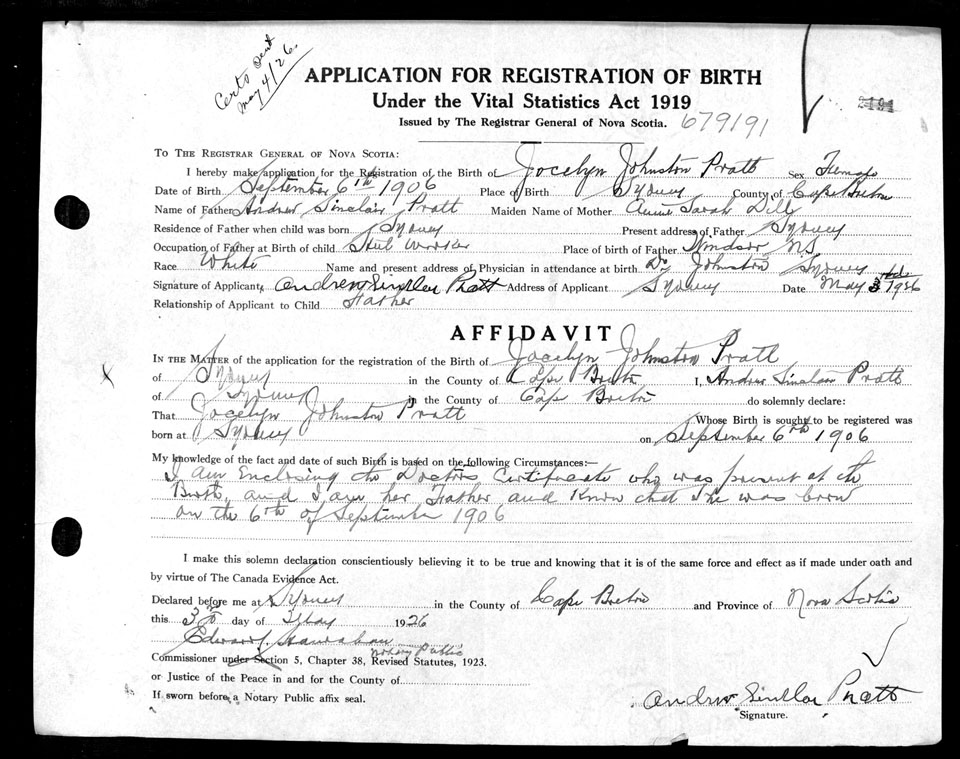 Certs Sent
May 4/26.
APPLICATION FOR REGISTRATION OF BIRTH
Under the Vital Statistics Act 1919
Issued by The Registrar General of Nova Scotia. 679191
2494
TO THE REGISTRAR GENERAL OF NOVA SCOTIA:
I hereby make application for the Registration of the Birth of Jocelyn Johnston Pratt Sex Female
Date of Birth September 6th 1906 Place of Birth Sydney County of Cape Breton
Name of Father Andrew Sinclair Pratt Maiden Name of Mother Annie Sarah Dill
Residence of Father when child was born Sydney Present address of Father Sydney
Occupation of Father at Birth of child Steel Worker Place of Birth of Father Windsor NS
Race White Name and present address of Physician in attendance at birth Dr Johnston Sydney
Signature of Applicant Andrew Sinclair Pratt Address of Applicant Sydney Date May 3rd 1926
Relationship of Applicant to Child Father
AFFIDAVIT
IN THE MATTER of the application for the registration of the Birth of Jocelyn Johnston Pratt
of Sydney in the County of Cape Breton I, Andrew Sinclair Pratt
of Sydney in the County of Cape Breton do solemnly declare:
That Jocelyn Johnston Pratt Whose Birth is sought to be registered was
born at Sydney on September 6th 1906
My knowledge of the fact and date of such Birth is based on the following Circumstances:—
I am Enclosing the Doctors Certificate who was present at the
Birth, and I am her Father and Know that she was born
on the 6th of September 1906
I make this solemn declaration conscientiously believing it to be true and knowing that it is of the same force and effect as if made under oath and
by virtue of The Canada Evidence Act.
Declared before me at Sydney in the County of Cape Breton and Province of Nova Scotia
this 3rd day of May 1926
Edward J. Hanrahan
Notary Public
Commissioner under Section 5, Chapter 38, Revised Statutes, 1923.
or Justice of the Peace in and for the County of
If sworn before a Notary Public affix seal.
Andrew Sinclair Pratt
Signature.